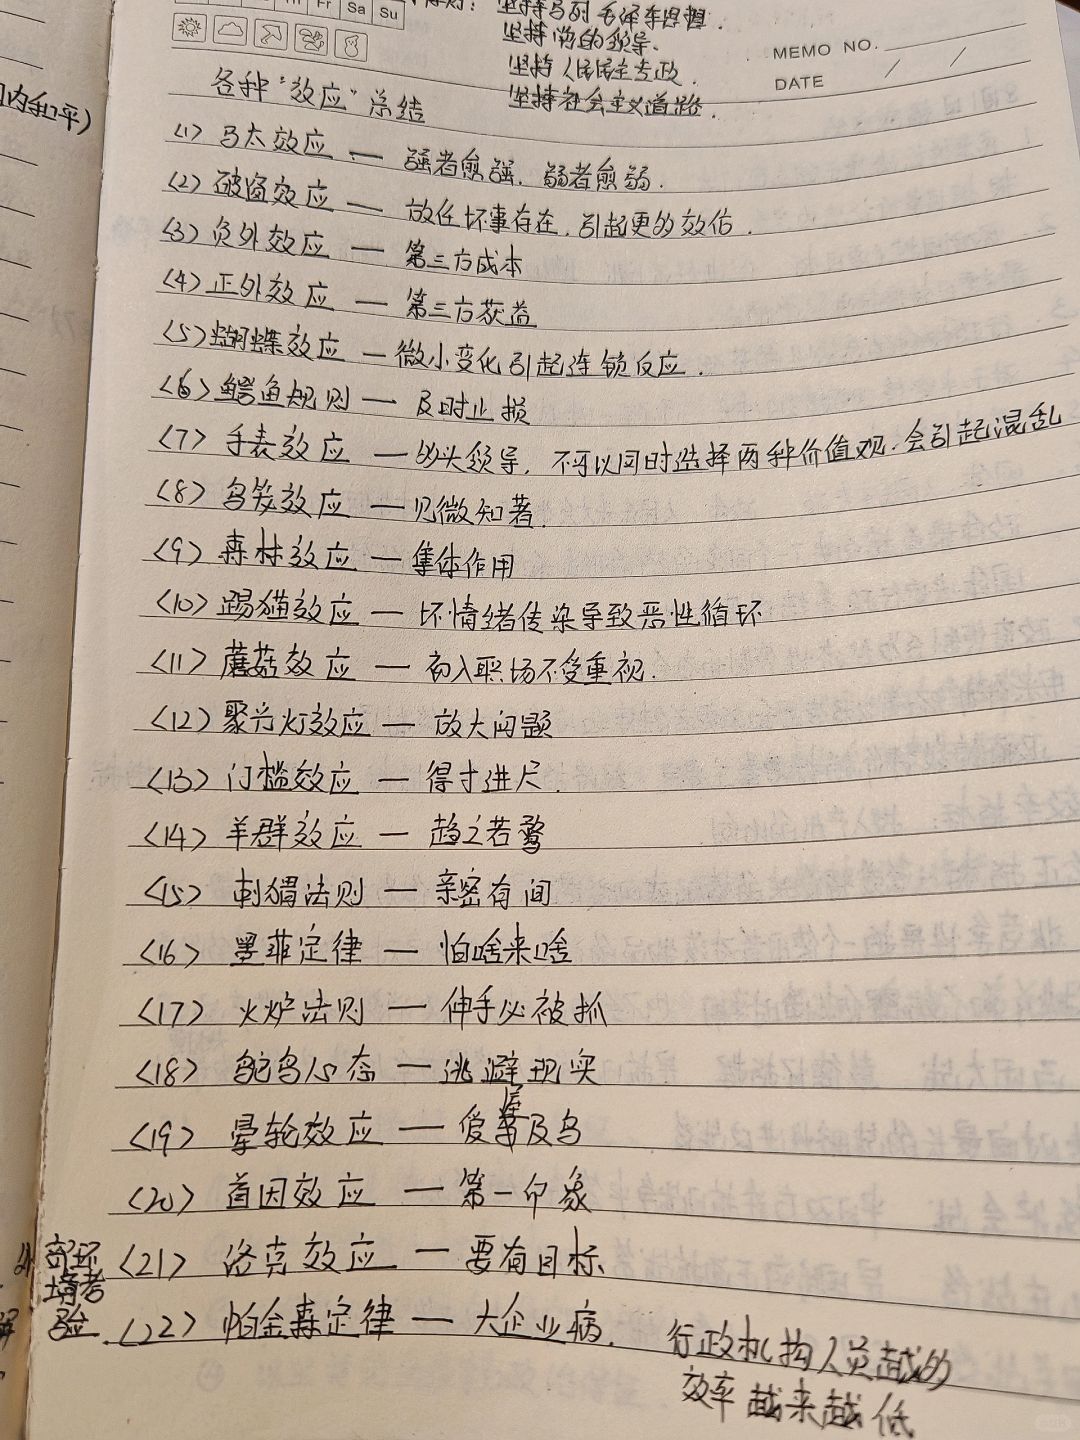 Fr Sa Su
坚持马列毛泽东思想.
坚持党的领导.
坚持人民民主专政.
坚持社会主义道路.
MEMO NO.
DATE / /
内和平)
各种“效应”总结
(1) 马太效应 — 强者愈强. 弱者愈弱.
(2) 破窗效应 — 放任坏事存在. 引起更的效仿.
(3) 负外效应 — 第三方成本
(4) 正外效应 — 第三方获益
(5) 蝴蝶效应 — 微小变化引起连锁反应.
(6) 鳄鱼规则 — 及时止损
(7) 手表效应 — 领导. 不可以同时选择两种价值观. 会引起混乱
(8) 鸟笼效应 — 见微知著.
(9) 森林效应 — 集体作用
(10) 踢猫效应 — 坏情绪传染导致恶性循环
(11) 蘑菇效应 — 初入职场不受重视.
(12) 聚光灯效应 — 放大问题
(13) 门槛效应 — 得寸进尺.
(14) 羊群效应 — 趋之若鹜
(15) 刺猬法则 — 亲密有间
(16) 墨菲定律 — 怕啥来啥
(17) 火炉法则 — 伸手必被抓
(18) 鸵鸟心态 — 逃避现实
(19) 晕轮效应 — 爱屋及乌
(20) 首因效应 — 第一印象
(21) 洛克效应 — 要有目标.
外部环
境考
验
(22) 帕金森定律 — 大企业病.
行政机构人员越的
效率越来越低